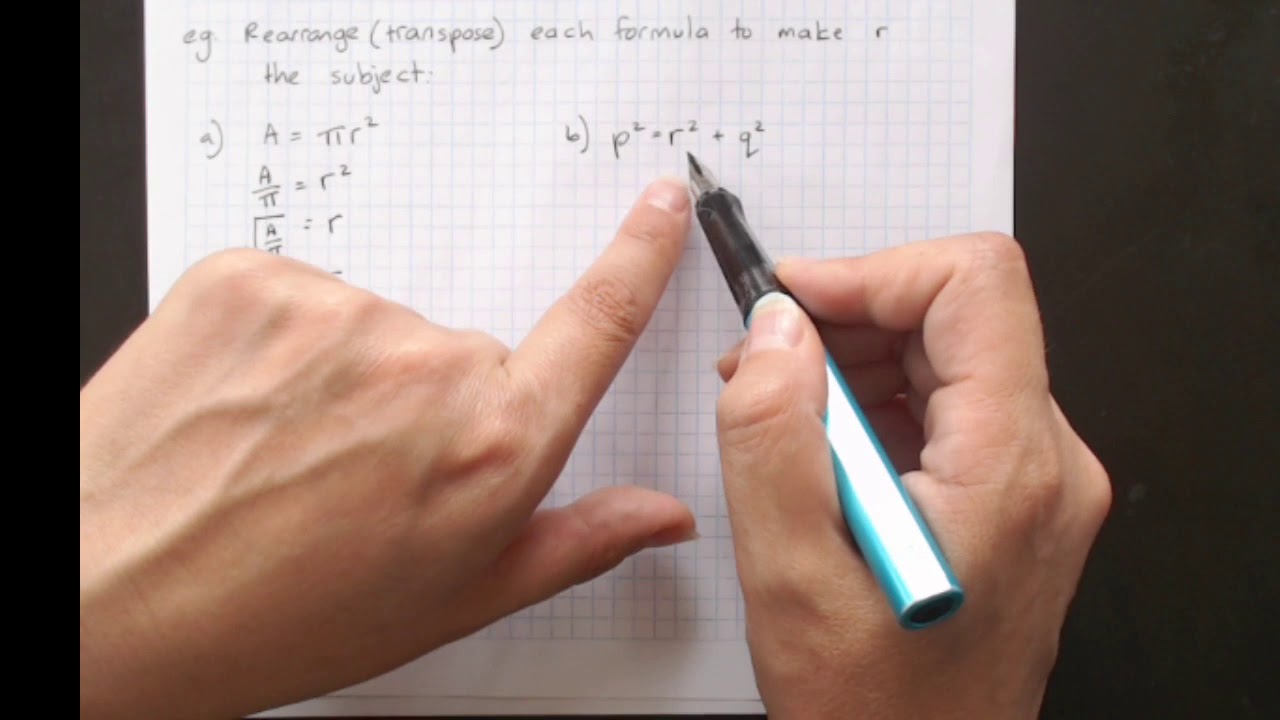 eg. Rearrange (transpose) each formula to make r
the subject:
a) A = πr²
A/π = r²
√A/π = r
b) p² = r² + q²